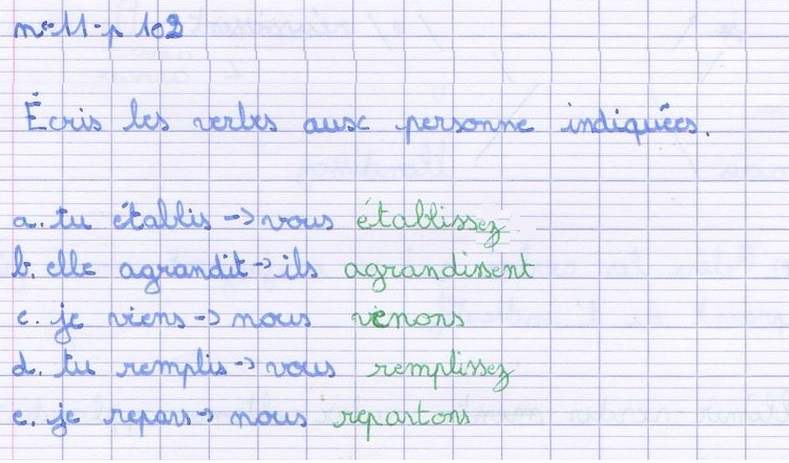 n°11-p 102
Écris les verbes aux personne indiquées.
a. tu établis -> vous établissez
b. elle agrandit -> ils agrandissent
c. je viens -> nous venons
d. tu remplis -> vous remplissez
e. je repars -> nous repartons